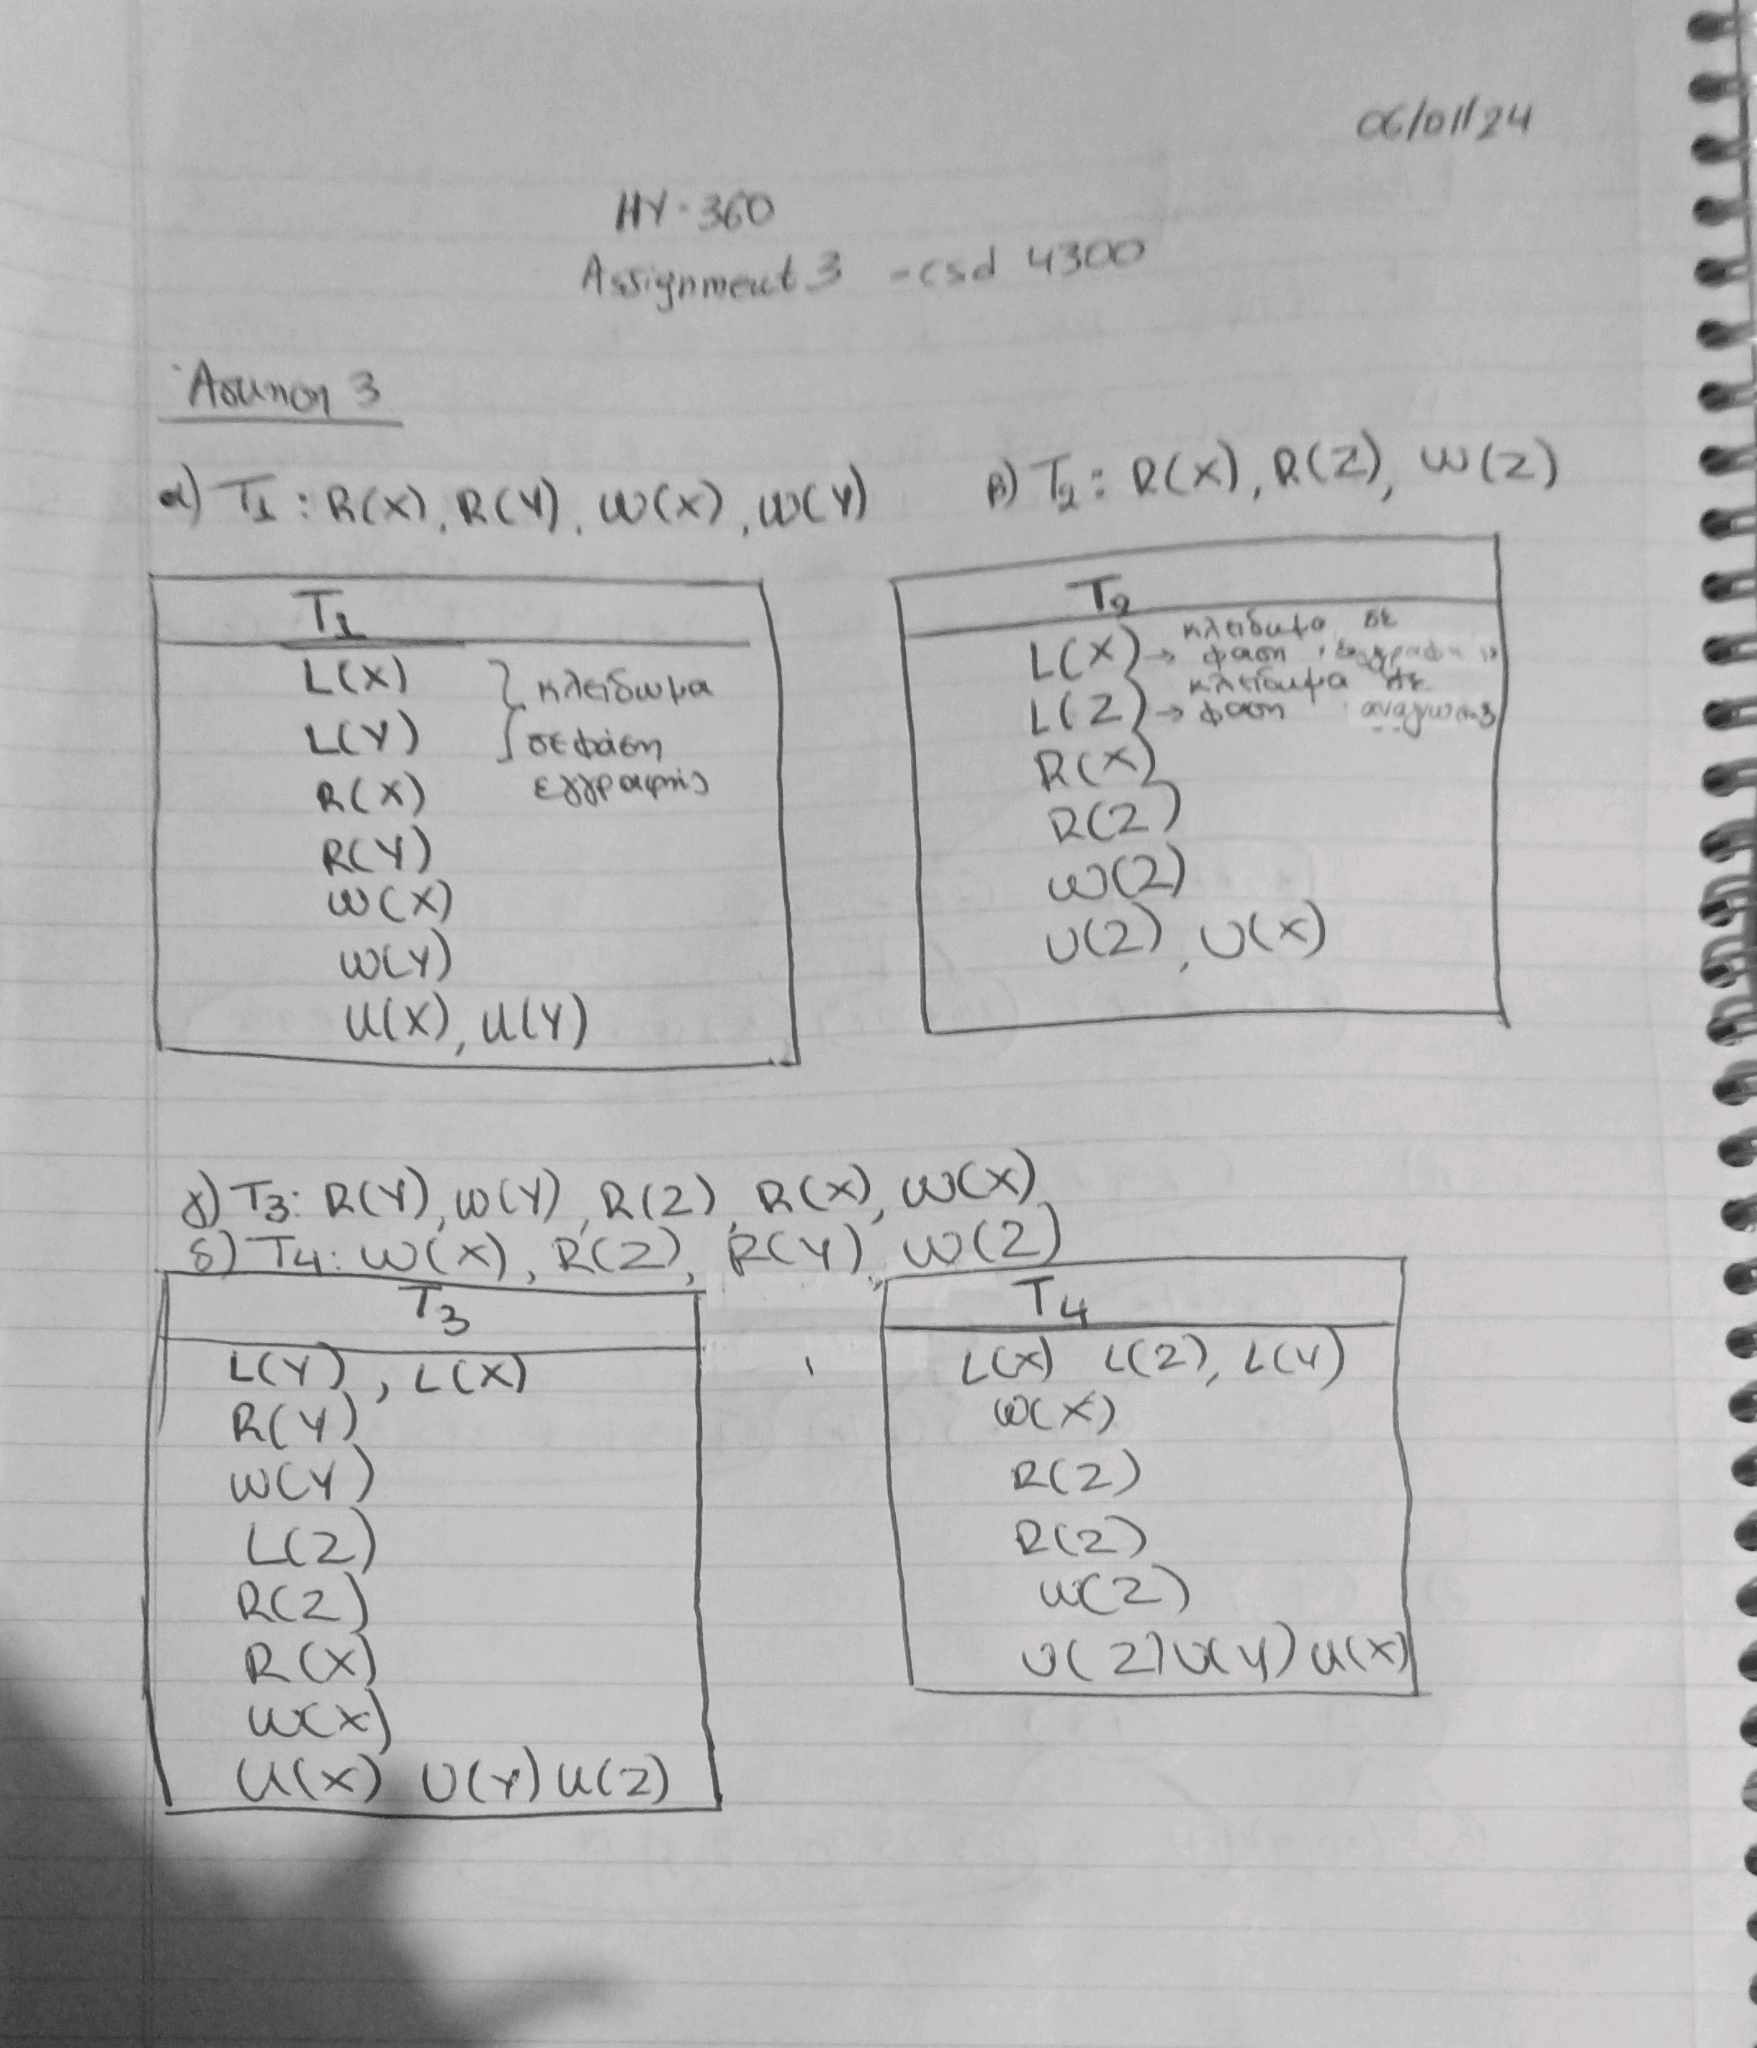 06/01/24
HY-360
Assignment 3 - csd 4300
Άσκηση 3
α) T1: R(X), R(Y), W(X), W(Y)
β) T2: R(X), R(Z), W(Z)
T1
L(X) κλείδωμα
L(Y) σε φάση
R(X) εγγραφής
R(Y)
W(X)
W(Y)
U(X), U(Y)
T2
κλείδωμα σε
L(X) → φάση
κλείδωμα σε
L(Z) → φάση ανάγνωσης
R(X)
R(Z)
W(Z)
U(Z), U(X)
γ) T3: R(Y), W(Y), R(Z), R(X), W(X)
δ) T4: W(X), R(Z), R(Y), W(Z)
T3
L(Y), L(X)
R(Y)
W(Y)
L(Z)
R(Z)
R(X)
W(X)
U(X) U(Y) U(Z)
T4
L(X) L(Z), L(Y)
W(X)
R(Z)
R(Z)
W(Z)
U(Z) U(Y) U(X)